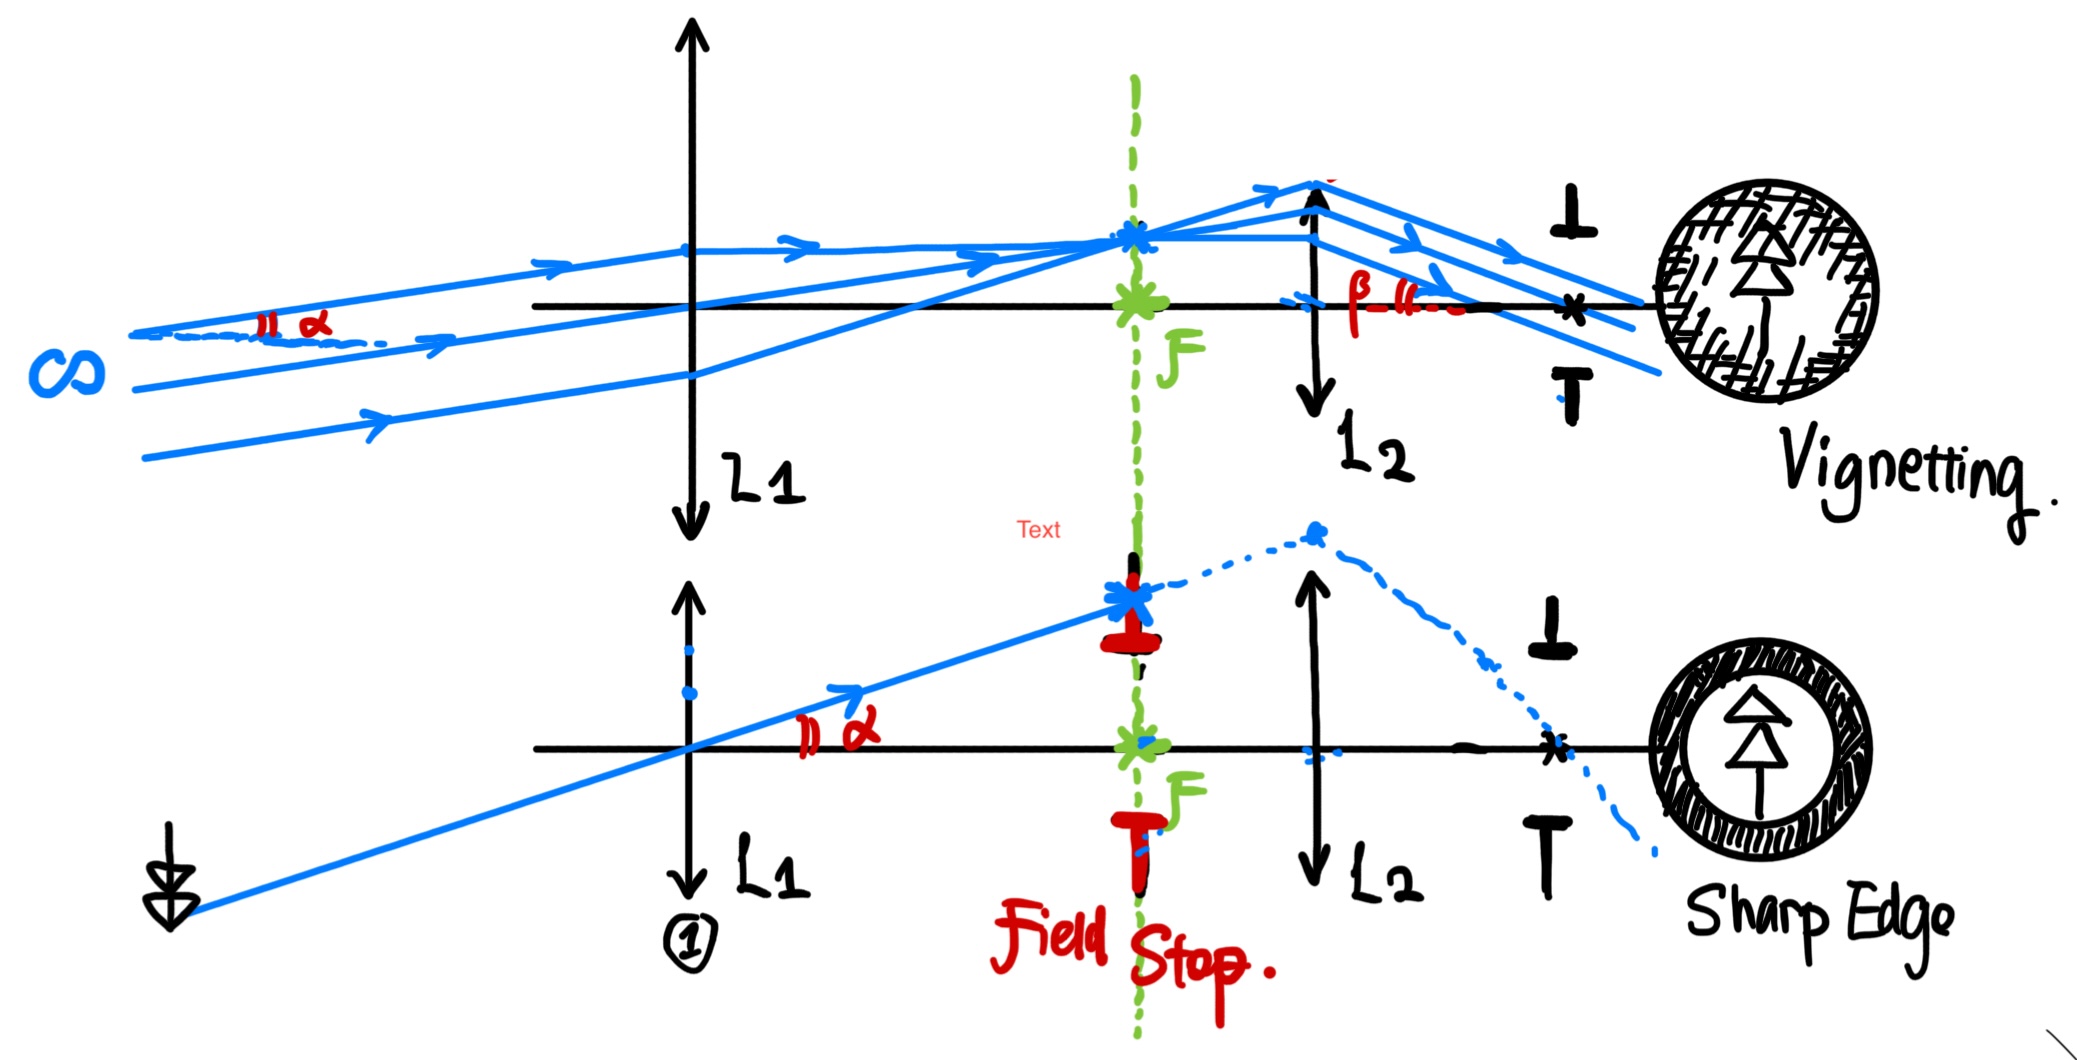 α
∞
β
F
L1
L2
Vignetting.
Text
α
F
L1
L2
1
Field Stop.
Sharp Edge